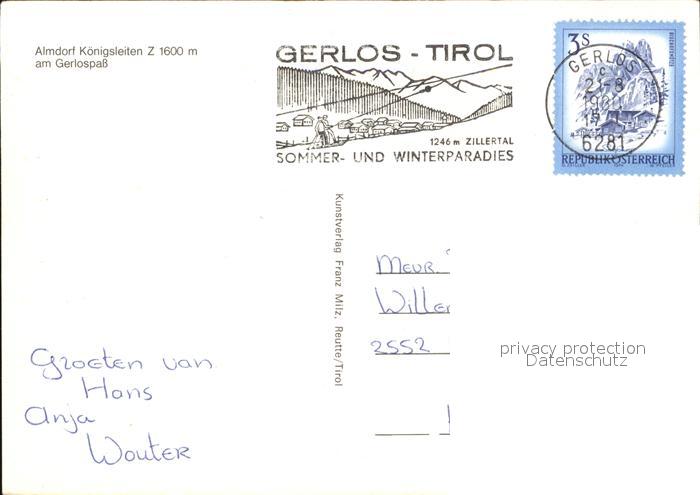 Almdorf Königsleiten Z 1600 m
am Gerlospaß
GERLOS - TIROL
1246 m ZILLERTAL
SOMMER- UND WINTERPARADIES
3S
REPUBLIK ÖSTERREICH
GERLOS
c
6281
Kunstverlag Franz Milz, Reutte/Tirol
Meur.
Willer
2552
privacy protection
Datenschutz
Groeten van
Hans
Anja
Wouter